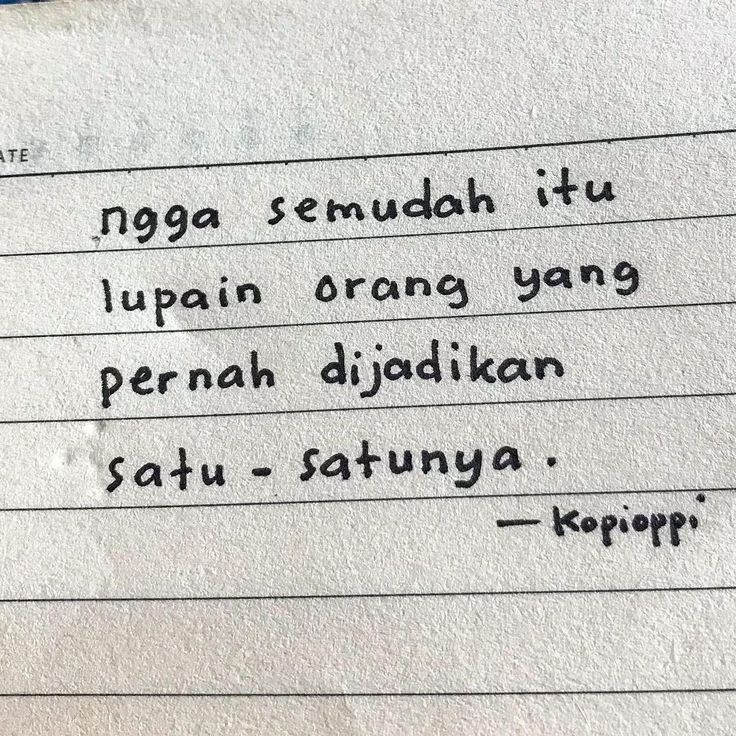 ATE
ngga semudah itu
lupain orang yang
pernah dijadikan
satu - satunya.
— Kopioppi